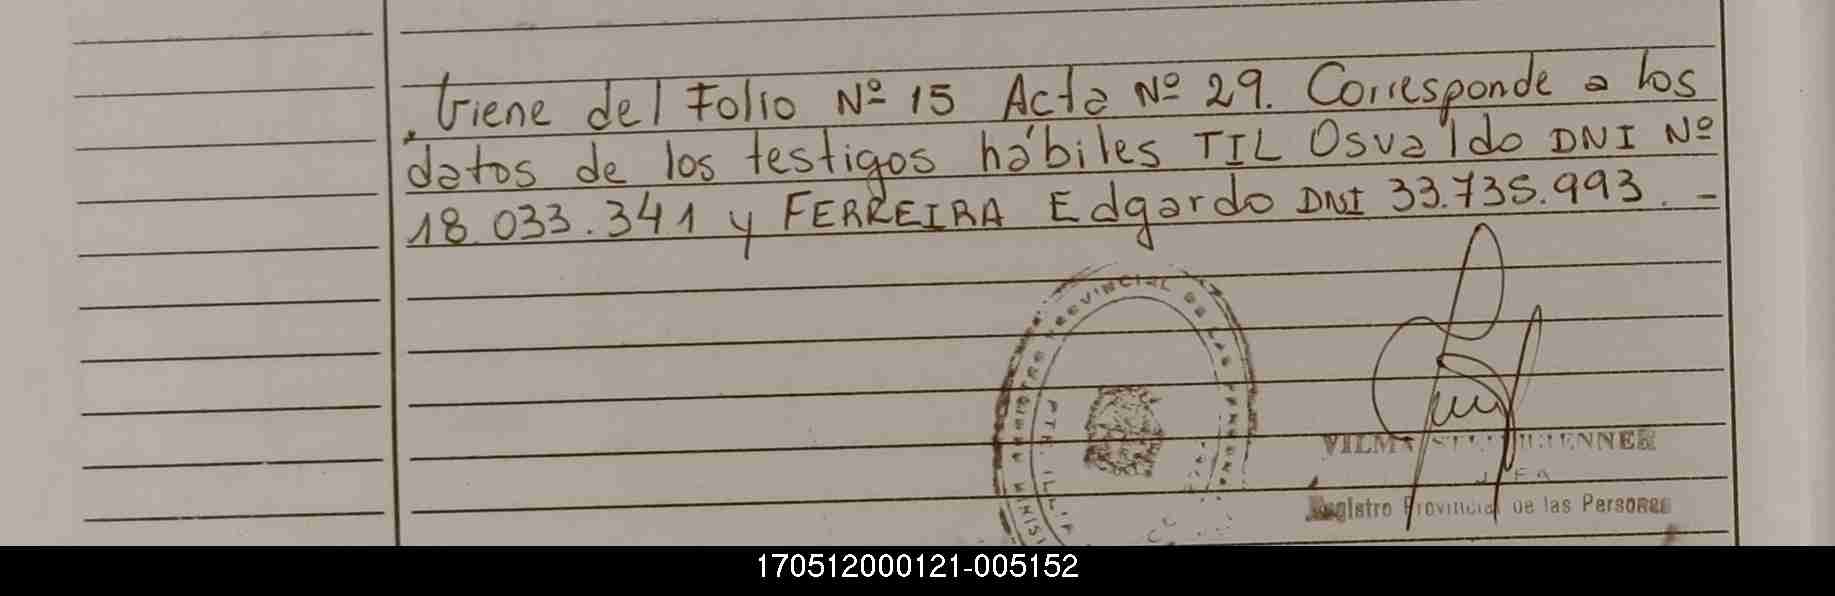 Viene del Folio Nº 15 Acta Nº 29. Corresponde a los
datos de los testigos hábiles TIL Osvaldo DNI Nº
18.033.341 y FERREIRA Edgardo DNI 33.735.993. -
PROVINCIAL DE LAS PERSONAS
PTE. ILLIA
VILMA JENNER
JEFA
Registro Provincial de las Personas
170512000121-005152